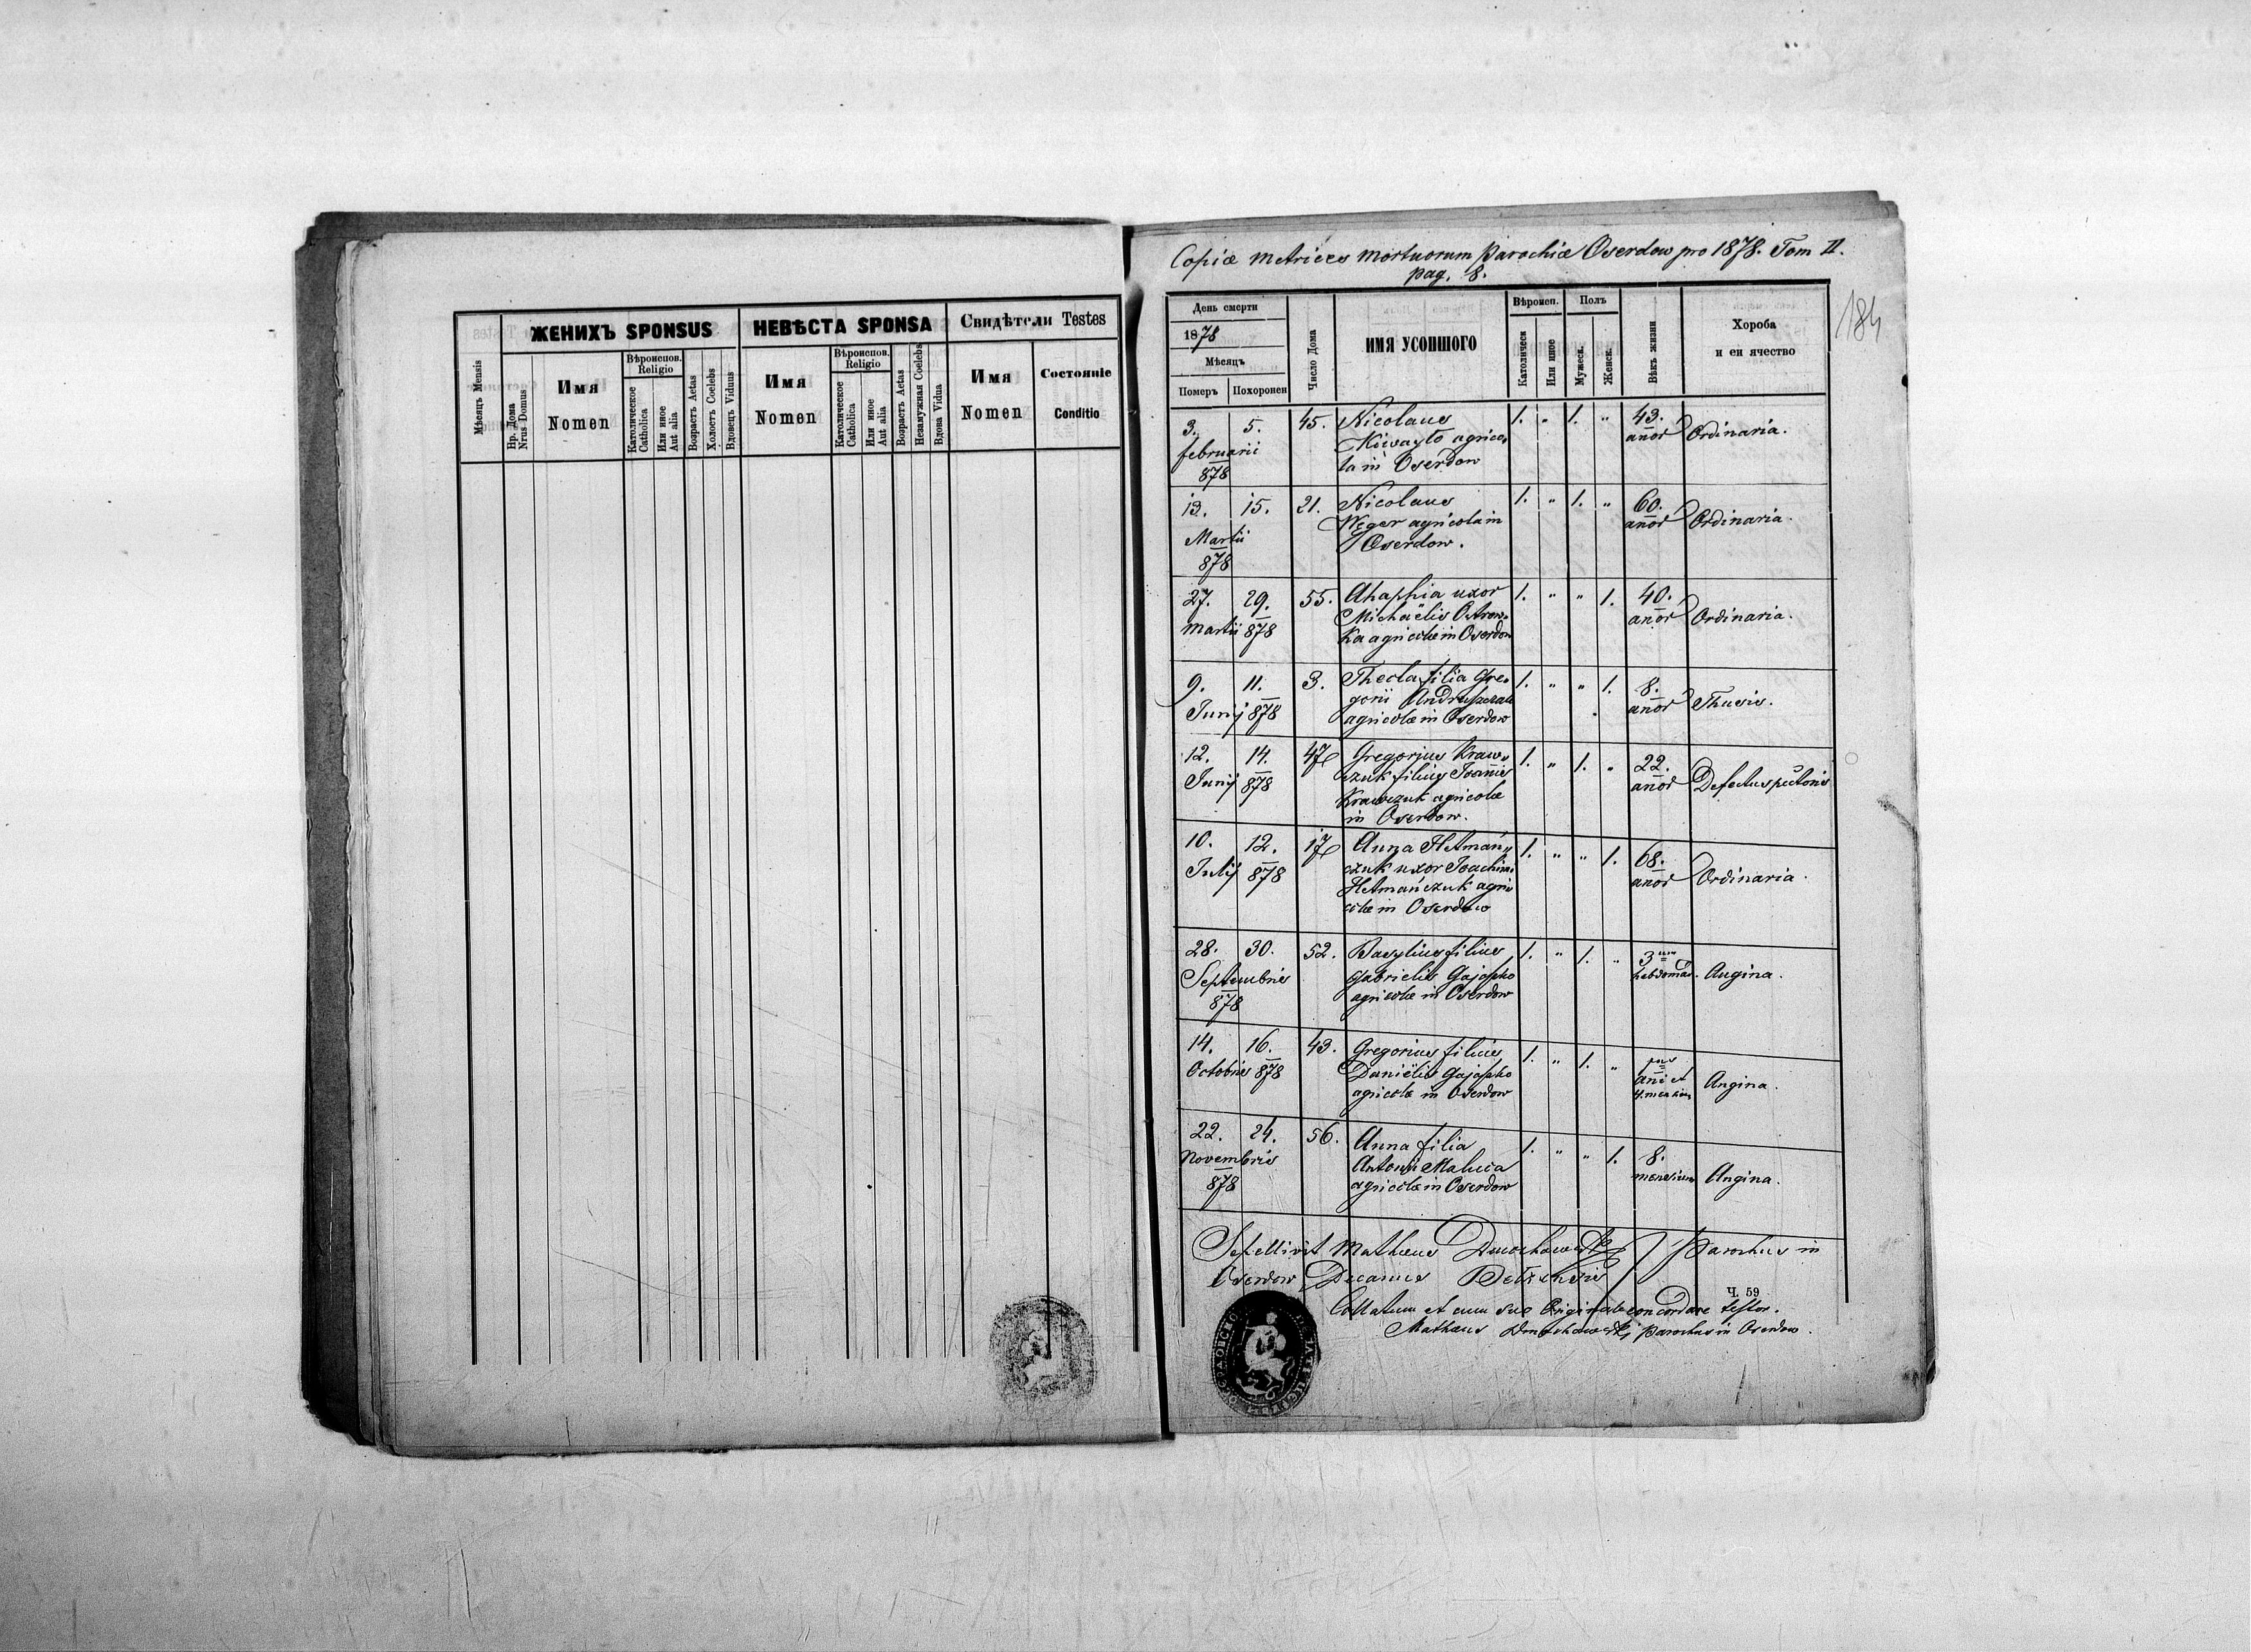 ЖЕНИХЪ SPONSUS НЕВѢСТА SPONSA Свидѣтели Testes
Мѣсяцъ Mensis
Нр. Дома
Nrus Domus
Имя
Nomen
Вѣроиспов.
Religio
Католическое
Catholica
Или иное
Aut alia
Возрастъ Aetas
Холостъ Coelebs
Вдовецъ Viduus
Имя
Nomen
Вѣроиспов.
Religio
Католическое
Catholica
Или иное
Aut alia
Возрастъ Aetas
Незамужная Coelebs
Вдова Vidua
Имя
Nomen
Состояніе
Conditio
Copiæ metrices mortuorum Parochiæ Oserdow pro 1878. Tom II.
pag. 8.
184
День смерти
1878
Мѣсяцъ
Померъ Похоронен
Число Дома
ИМЯ УСОПШОГО
Вѣроисп.
Католическ
Или иное
Полъ
Мужеск.
Женск.
Вѣкъ жизни
Хороба
и еи ячество
3. 5. 45. Nicolaus 1. " 1. " 43.
februarii agrico= anor Ordinaria.
878 la in Oserdow
13. 15. 21. Nicolaus 1. " 1. " 60.
Martii Weger agricola in anor Ordinaria.
878 Oserdow.
27. 29. 55. Ahaphia uxor 1. " " 1. 40.
Martii 878 Michaëlis anor Ordinaria.
ka agricolæ in Oserdow
9. 11. 3. Thecla filia Gre= 1. " " 1. 8.
Junij 878 gorii anor Thusis.
agricolæ in Oserdow
12. 14. 47 Gregorius Kraw= 1. " 1. " 22.
Junij 878 czuk filius Joannis anor Defectus pectoris
Krawczuk agricolæ
in Oserdow.
10. 12. 17 Anna Hetmań= 1. " " 1. 68.
Julij 878 czuk uxor Joachimi anor Ordinaria.
Hetmańczuk agri=
colæ in Oserdow
28. 30. 52. Basylius filius 1. " 1. " 3
Septembris Gabrielis Gajosko hebdomad. Angina.
878 agricolæ in Oserdow
14. 16. 43. Gregorius filius 1. " 1. "
Octobris 878 Daniëlis Gajosko ani et Angina.
agricolæ in Oserdow 4. mensium
22. 24. 56. Anna filia 1. " " 1. 8.
Novembris Antonii Maluca mensium Angina.
878 agricolæ in Oserdow
Sepellivit Mathæus Dmochowski Parochus in
Oserdow Decanus
Ч. 59
Collatum et cum suo Originale concordare testor.
Mathæus Dmochowski parochus in Oserdow.